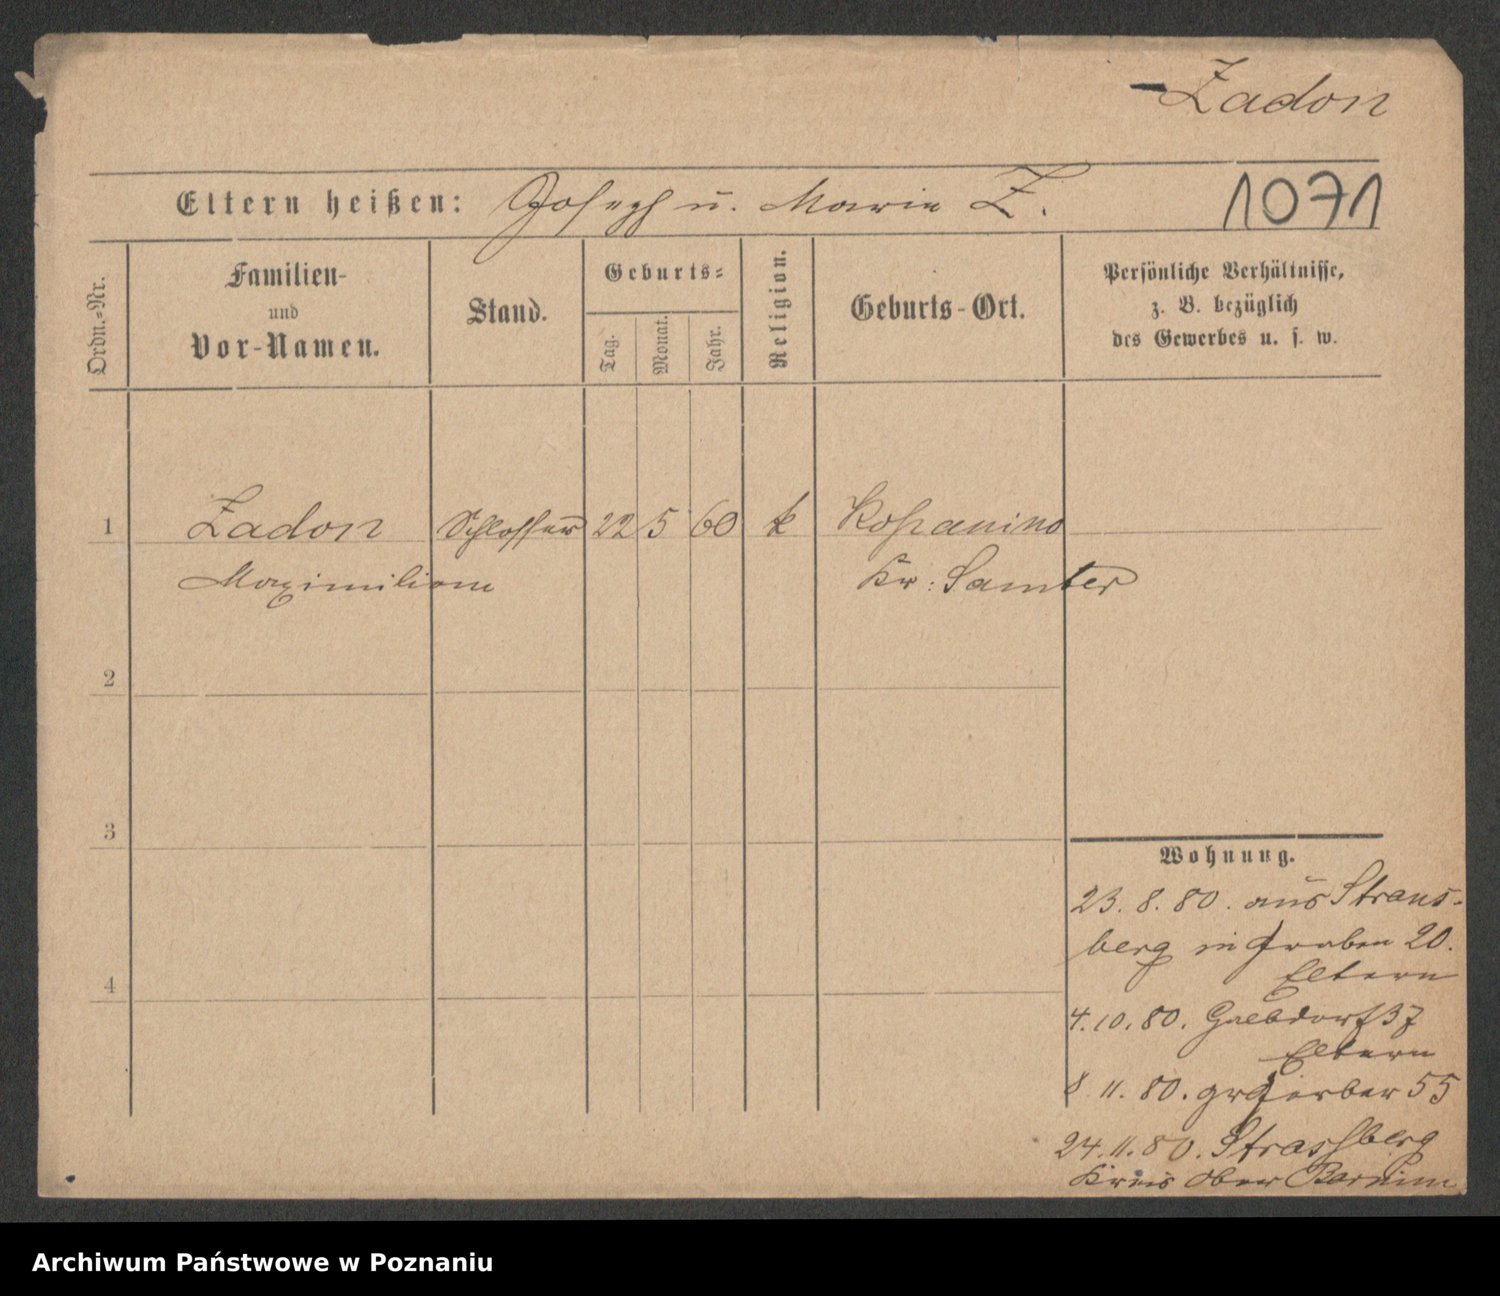 Zadon
Eltern heißen: Joseph u. Marie Z.
1071
Ordn.=Nr.
Familien-
und
Vor-Namen.
Stand.
Geburts=
Tag.
Monat.
Jahr.
Religion.
Geburts-Ort.
Persönliche Verhältnisse,
z. B. bezüglich
des Gewerbes u. s. w.
1 Zadon Schlosser 22 5 60 k Kopanino
Maximilian Kr: Samter
2
3
4
Wohnung.
23. 8. 80. aus Straus-
berg in Graben 20.
Eltern
4. 10. 80. 37
Eltern
8 11. 80. gr Gerber 55
24. 11. 80. Strassberg
Kreis Ober Barnim
Archiwum Państwowe w Poznaniu